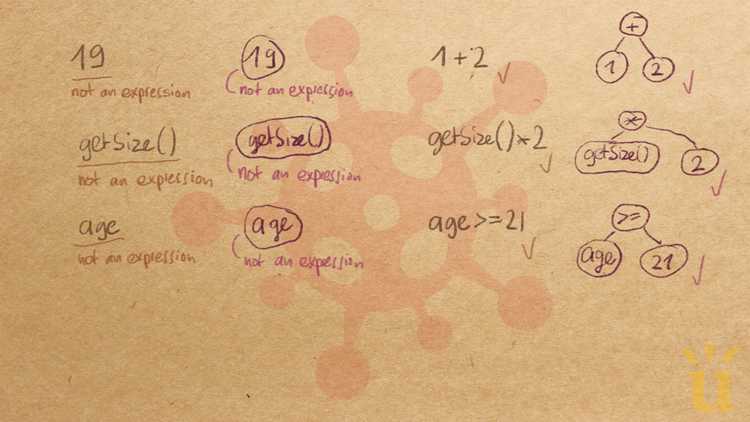 19
not an expression
19
not an expression
1+2
+
1 2
getSize()
not an expression
getSize()
not an expression
getSize()*2
*
getSize() 2
age
not an expression
age
not an expression
age >= 21
>=
age 21
u